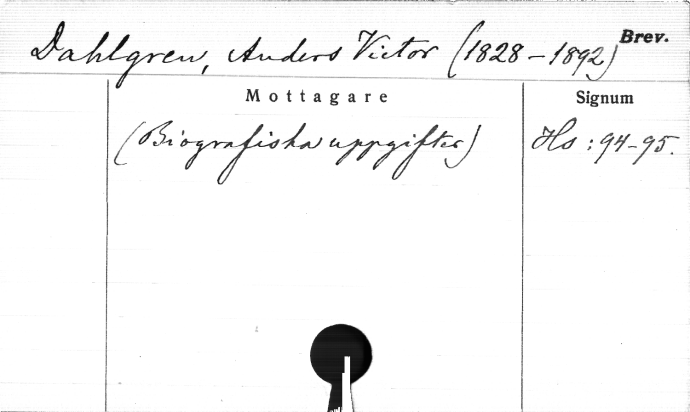 Dahlgren, Anders Victor (1828-1892) Brev.
Mottagare Signum
(Biografiska uppgifter) Hs: 94-95.